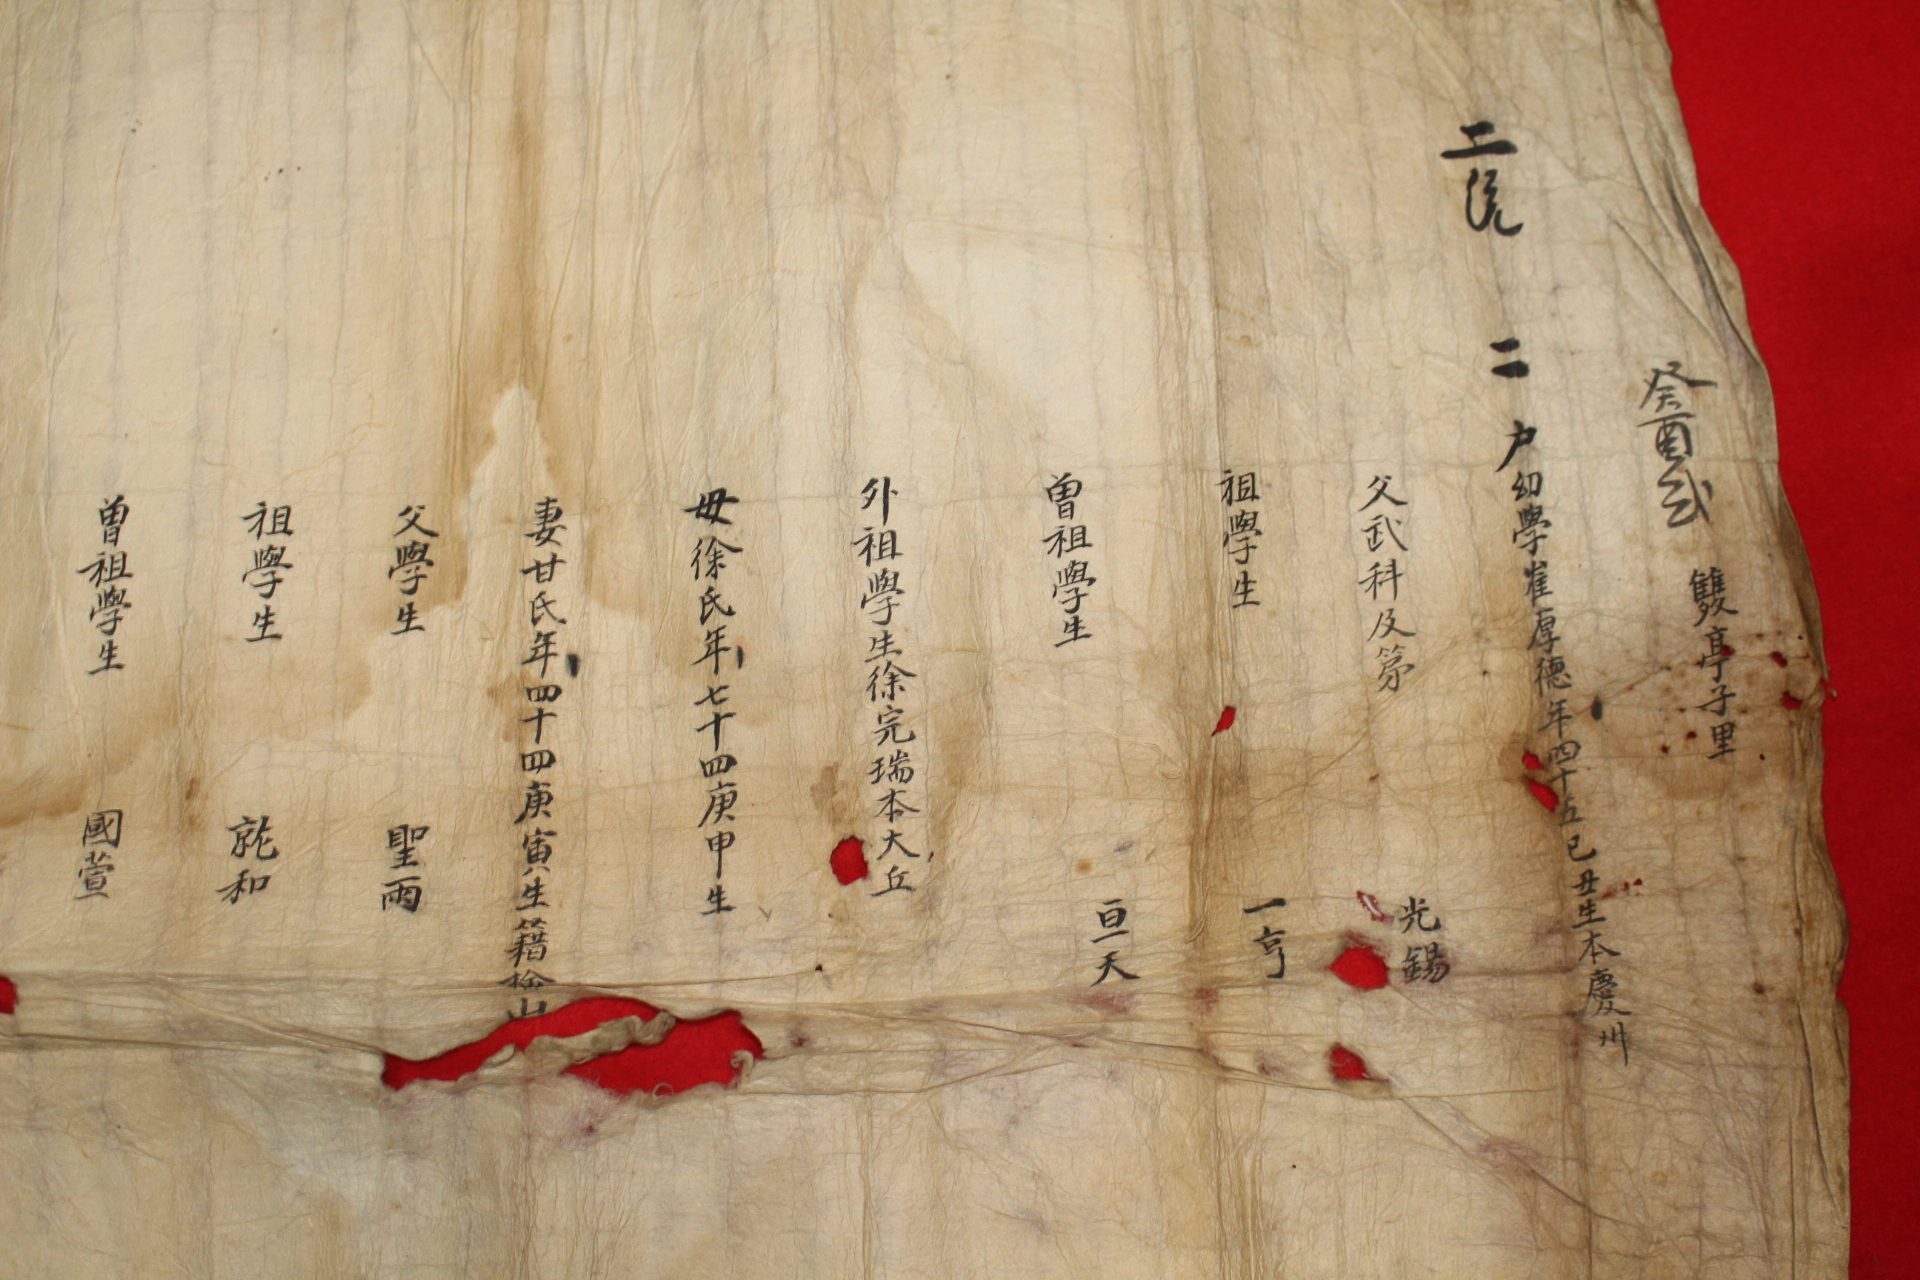 癸酉式 雙亭子里
二統 二 户幼學崔厚德年四十五己丑生本慶州
父武科及第 光錫
祖學生 一亨
曾祖學生 亘天
外祖學生徐完瑞本大丘
母徐氏年七十四庚申生
妻甘氏年四十四庚寅生籍檜山
父學生 聖雨
祖學生 就和
曾祖學生 國萱